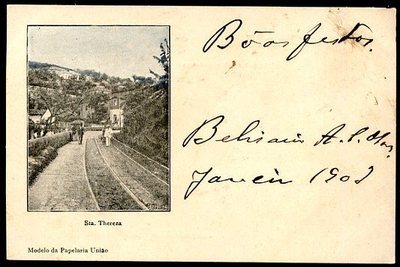 Bôas festas.
Belisario A. S.
Janeiro 1902
Sta. Thereza
Modelo da Papelaria União